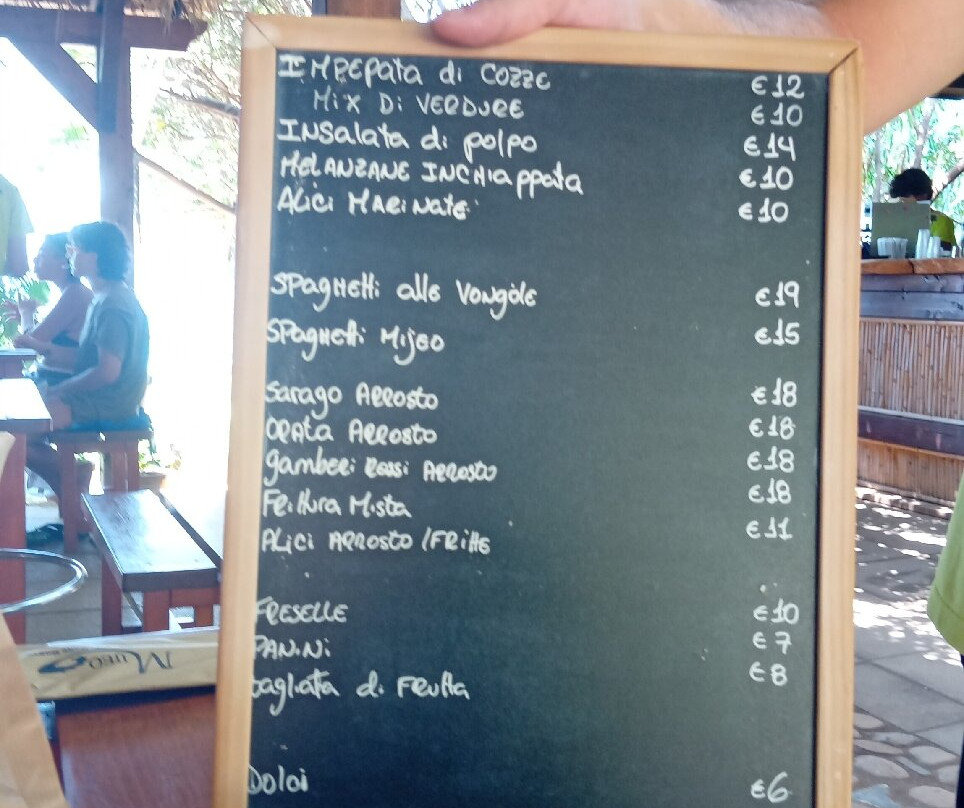 IMPEPata di COZZE €12
MiX Di VERDURE €10
INSalata di polpo €14
MELANZANE INCHiappata €10
ALici MARiNate €10
SPagHetti alle Vongole €19
SPagHetti Mijeo €15
Sarago ARROSto €18
ORAta ARROSto €18
gamberi Rossi ARROSto €18
FRittura Mista €18
ALici ARROSTO / FRitte €11
FRESELLE €10
PANiNi €7
tagliata di FRutta €8
Dolci €6
MIJEO